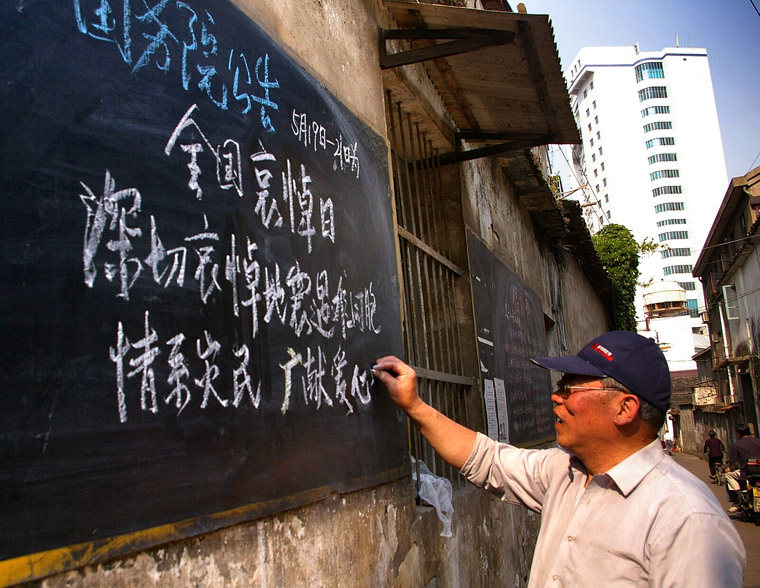 国务院公告
5月19日—21日为
全国哀悼日
深切哀悼地震遇难同胞
情系灾民 广献爱心